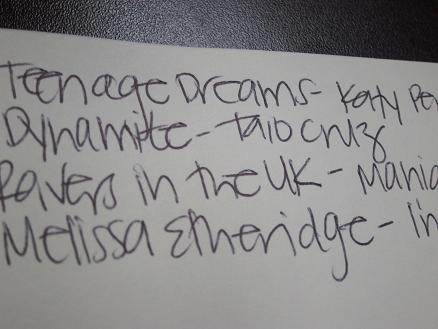 Teenage Dreams- Katy Pe
Dynamite- Taio Cruz
Ravers in the UK - Mania
Melissa Etheridge- I'm